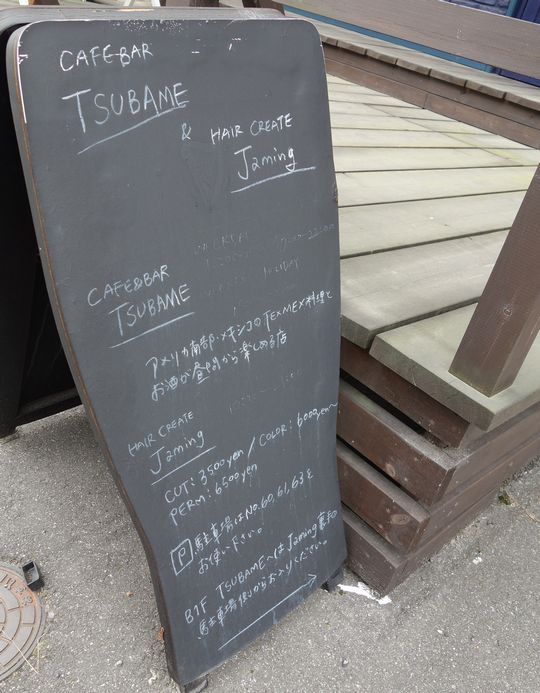 CAFE&BAR
TSUBAME
& HAIR CREATE
Jaming
CAFE&BAR
TSUBAME
HOLIDAY
アメリカ南部・メキシコのTEXMEX料理と
お酒が昼間から楽しめる店
HAIR CREATE
Jaming
CUT: 3500yen / COLOR: 6000yen~
PERM: 6500yen
P 駐車場はNo.60,61,63を
お使い下さい。
B1F TSUBAMEへはJaming裏手の
駐車場側からお入りください。